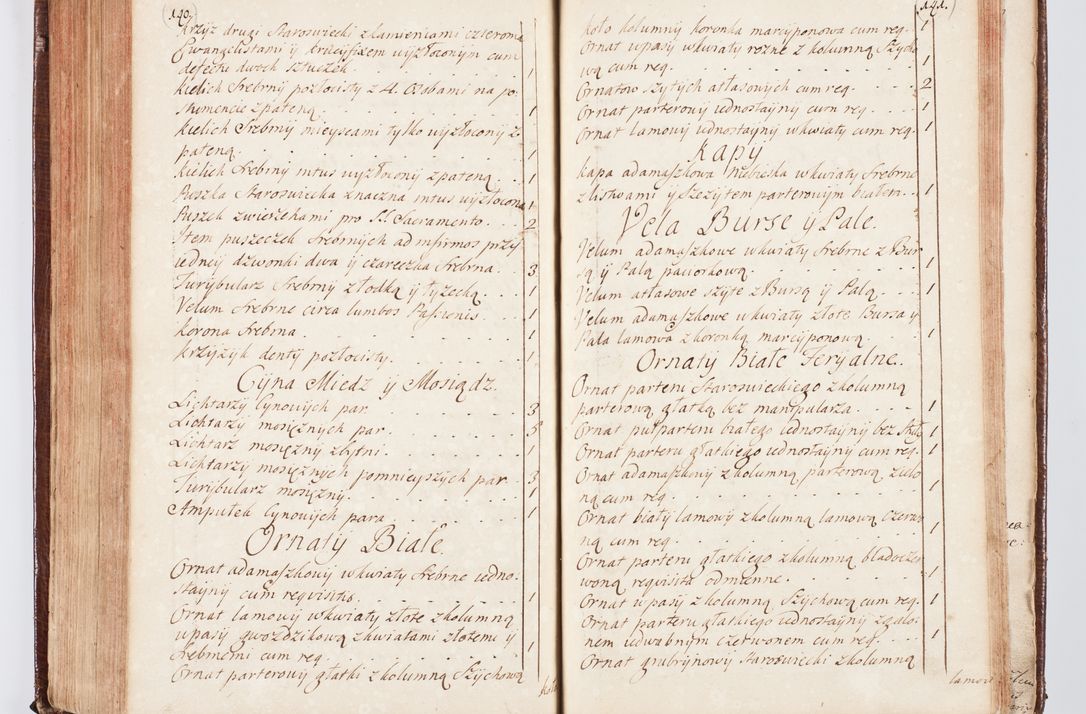 140.
Krzyż drugi Staroswiecki zkamieniami czterema
Ewangelistami y krucyfixem wyzłoconym cum
defectu dwoch sztuczek. 1
Kielich Srebrny pozłocisty z 4. Osobami na po-
stumencie z pateną. 1
Kielich Srebrny mieyscami tylko wyzłocony z
pateną. 1
Kielich Srebrny intus wyzłocony z pateną. 1
Puszka Staroswiecka znaczna intus wyzłocona 1
Puszek zwierzchami pro SS. Sacramento. 2
Item puszeczek Srebrnych ad infirmos przy
iedney dzwonki dwa y czareczka Srebrna. 3
Turybularz Srebrny z łodką y łyzecką. 1
Velum Srebrne circa lumbos Passionis. 1
Korona Srebrna. 1
Krzyzyk denty pozłocisty. 1
Cyna Miedz y Mosiądz.
Lichtarzy Cynowych par. 3
Lichtarzy mosięznych par. 5
Lichtarz mosięzny zbytni. 1
Lichtarzy mosięznych pomnieyszych par. 3
Turybularz mosięzny. 1
Ampułek Cynowych para. 1
Ornaty Białe.
Ornat adamaszkowy w kwiaty Srebrne iedno-
staiyny cum requisitis. 1
Ornat lamowy w kwiaty złote z kolumną
w pasy gwozdzikową z kwiatami złotemi y
Srebrnemi cum req. 1
Ornat parterowy gładki z kolumną Szychową
koło
141.
koło kolumny koronka marcyponowa cum req. 1
Ornat w pasy w kwiaty rozne z kolumną Szycho-
wą cum req. 1
Ornatow szytych atłasowych cum req. 2
Ornat parterowy iednostayny cum req. 1
Ornat lamowy iednostayny w kwiaty cum req. 1
Kapy
Kapa adamaszkowa niebieska w kwiaty Srebrne
z listwami y szczytem parterowym białem. 1
Vela Burse y Pale.
Velum adamaszkowe w kwiaty Srebrne z Bur
są y Palą paciorkową. 1
Velum atłasowe szyte z Bursą y Palą. 1
Velum adamaszkowe w kwiaty złote Bursa y
Pala lamowa z koronką marcyponową. 1
Ornaty Białe Feryalne.
Ornat parteru Staroswieckiego z kolumną
parterową gładką bez manipularza. 1
Ornat pułparteru białego iednostayny bez Stuły 1
Ornat parteru gładkiego iednostayny cum req. 1
Ornat adamaszkowy z kolumną parterową zielo
ną cum req. 1
Ornat biały lamowy z kolumną lamową czerwo
ną cum req. 1
Ornat parteru gładkiego z kolumną bladoczer
woną requisita odmienne. 1
Ornat w pasy z kolumną Szychową cum req. 1
Ornat parteru gładkiego iednostayny z galo-
nem iedwabnym czerwonem cum req. 1
Ornat grubrynowy Staroswiecki z kolumną
lamow